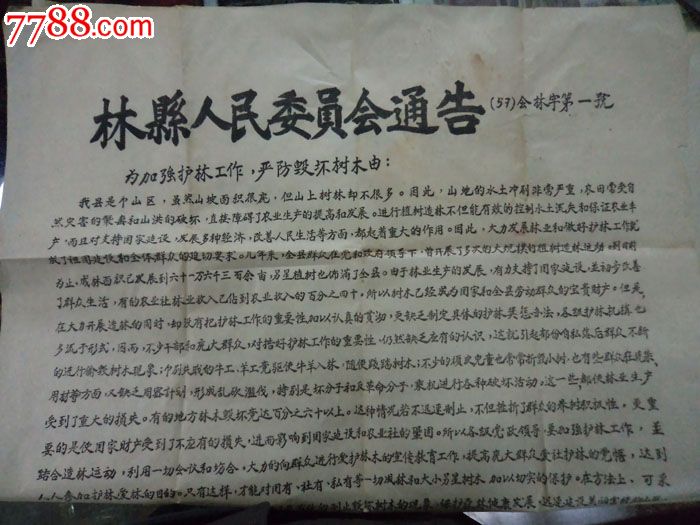 7788.com
中国收藏热线
林縣人民委員会通告
(57)会林字第一號
为加强护林工作，严防毁坏树木由：
我县是个山区，虽然山坡面积很广，但山上树林却不很多。因此，山地的水土冲刷非常严重，农田常受自
然灾害的袭击和山洪的破坏，直接障碍了农业生产的提高和发展。进行植树造林不但能有效的控制水土流失和保证农业丰
产，而且对支持国家建设，发展多种经济，改善人民生活等方面，都起着重大的作用。因此，大力发展林业和做好护林工作就
成了祖国建设和全体群众的迫切要求。几年来，全县群众在党和政府领导下，曾开展了多次的大规模的植树造林运动，到目前
为止，成林面积已发展到六十一万六千三百余亩，另星植树也佈满了全县。由于林业生产的发展，有力支持了国家建设，並初步改善
了群众生活，有的农业社林业收入已佔到农业收入的百分之四十，所以树木已经成为国家和全县劳动群众的宝贵财产。但是，
在大力开展造林的同时，却没有把护林工作的重要性加以认真的贯沏，更缺乏制定具体的护林奖惩办法，各级护林机構也
多流于形式，因而，不少干部和广大群众，对搞好护林工作的重要性，仍然缺乏应有的认识，这就引起部份自私落后群众不断
的进行偷砍树木现象；个别失职的牛工、羊工竟驱使牛羊入林，随便践踏树木；不少的顽皮儿童也常常折毁小树，也有些群众在建築、
用材等方面，又缺乏周密计划，形成乱砍滥伐，特别是坏分子和反革命分子，乘机进行各种破坏活动，这一些都使林业生产
受到了重大的损失。有的地方林木毁坏竟达百分之六十以上。这种情况若不迅速制止，不但挫折了群众的养树积极性，更重
要的是使国家财产受到了不应有的损失，进而影响到国家建设和农业社的鞏固。所以各级党政领导要加强护林工作，並
结合造林运动，利用一切会议和场合，大力的向群众进行爱护林木的宣传教育工作，提高广大群众爱社护林的觉悟，达到
人人参加护林爱林的目的。只有这样，才能对国有、社有、私有等一切成林和大小另星树木加以切实的保护。在方法上，可采
制止毁坏树木的现象，保护森林